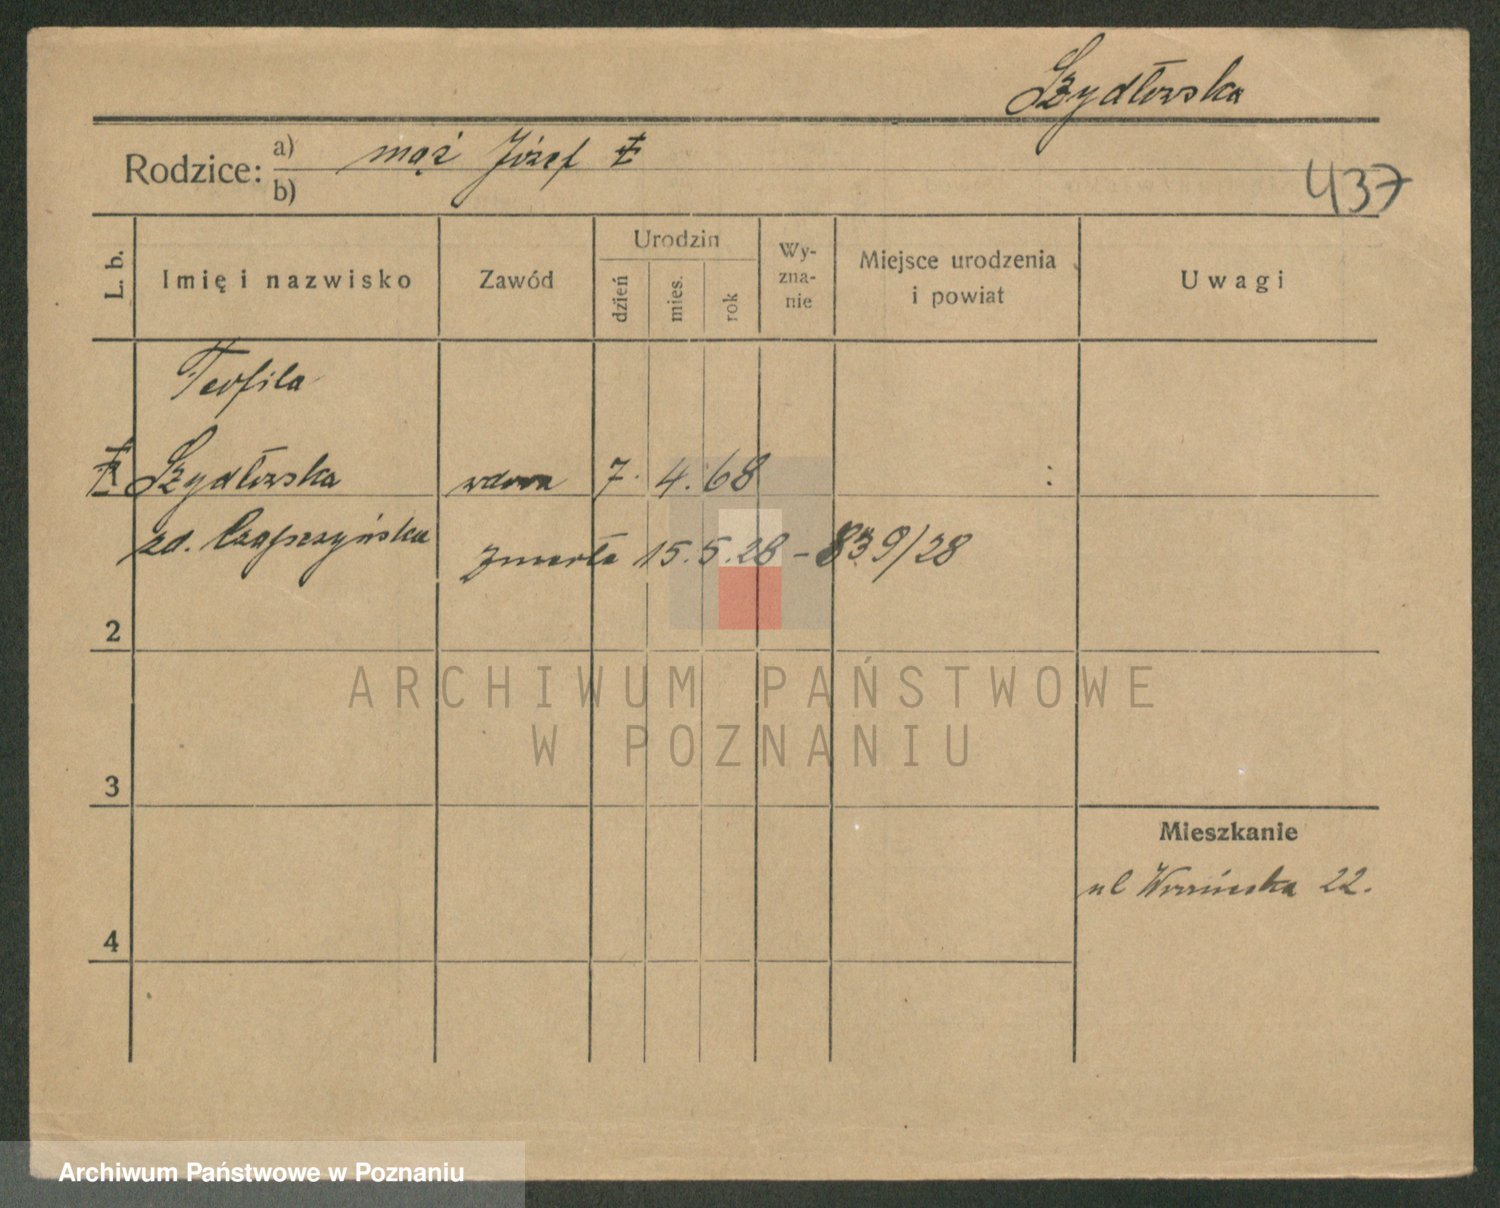 Szydłowska
Rodzice: a) mąż Józef ‡
b)
437
L. b.
Imię i nazwisko
Zawód
Urodzin
dzień
mies.
rok
Wy-
zna-
nie
Miejsce urodzenia
i powiat
Uwagi
Teofila
‡ 1 Szydłowska wdowa 7. 4. 68
zd. zmarła 15.5.28 – 839/28
2
3
Mieszkanie
ul 22.
4
ARCHIWUM PAŃSTWOWE
W POZNANIU
Archiwum Państwowe w Poznaniu